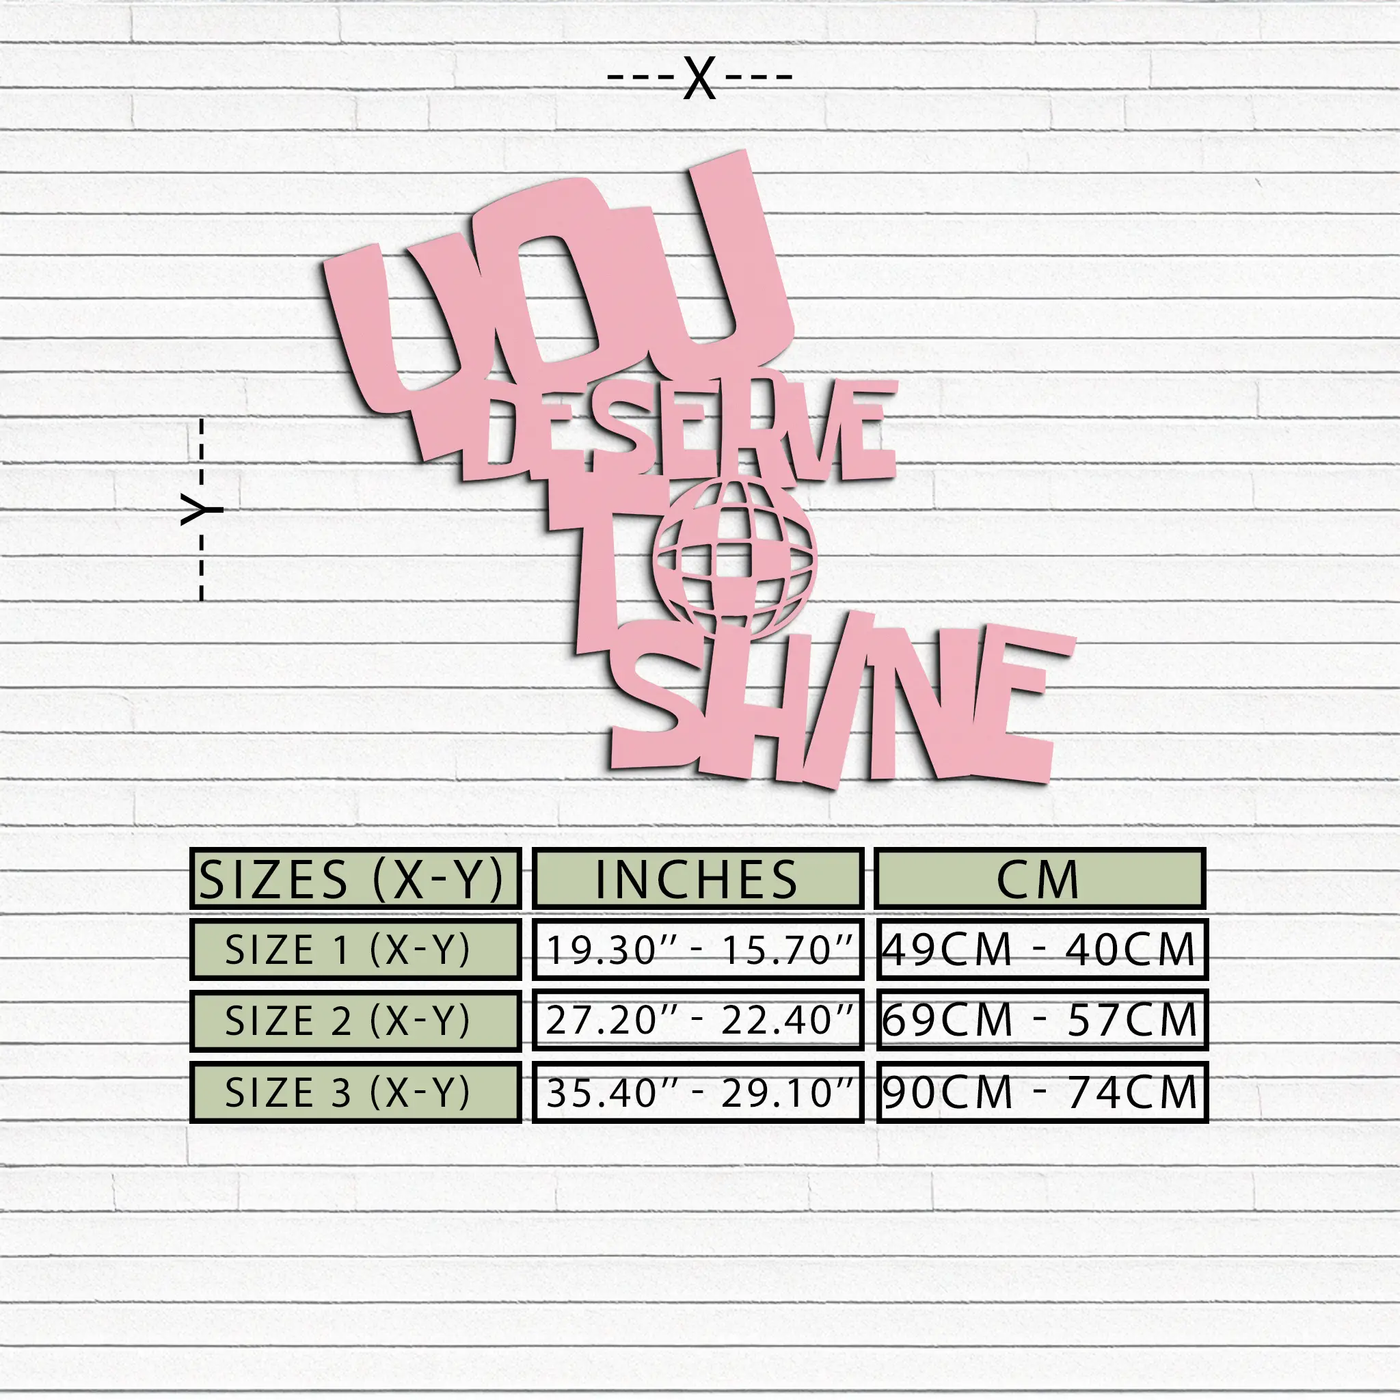 ---X---
YOU
DESERVE
---Y---
TO
SHINE
SIZES (X-Y) INCHES CM
SIZE 1 (X-Y) 19.30’’ - 15.70’’ 49CM - 40CM
SIZE 2 (X-Y) 27.20’’ - 22.40’’ 69CM - 57CM
SIZE 3 (X-Y) 35.40’’ - 29.10’’ 90CM - 74CM